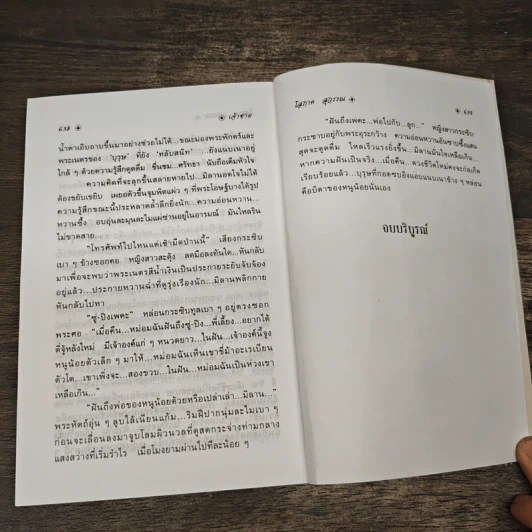 ๖๓๘ เจ้าซาย
น้ำตาเอิบอาบขึ้นมาอย่างช่วยไม่ได้...ขณะมองพระพักตร์และ
พระเนตรของ 'บุรุษ' ที่ยัง 'หลับสนิท' ...ยังแนบเนาอยู่
ใกล้ ๆ ด้วยความรู้สึกดูดดื่ม ชื่นชม...ศรัทธา นับถือเต็มหัวใจ
ความคิดที่จะลุกขึ้นสลายหายไป...มิลานอดใจไม่ได้
ต้องขยับเขยิบ เผยอตัวขึ้นจุมพิตแผ่ว ๆ ที่พระโอษฐ์บางได้รูป
ความรู้สึกขณะนี้ประหลาดล้ำลึกยิ่งนัก...ความอ่อนหวาน...
หวานซึ้ง อบอุ่นละมุนละไมแผ่ซ่านอยู่ในอารมณ์ มันไหลริน
ไม่ขาดสาย...
"โทรศัพท์ไปไหนแต่เช้ามืดป่านนี้" เสียงกระซิบ
เบา ๆ ข้างซอกคอ หญิงสาวสะดุ้ง ลดมือลงทันใด...หันกลับ
มาเพื่อจะพบว่าพระเนตรสีน้ำเงินเป็นประกายระยับจับจ้อง
อยู่แล้ว...ประกายหวานฉ่ำที่ดูรุ่งเรืองนัก...มิลานพลิกกาย
หันกลับไปหา
"ซู่-ปิงเพคะ" หล่อนกระซิบทูลเบา ๆ อยู่ตรงซอก
พระศอ "เมื่อคืน...หม่อมฉันฝันถึงซู่-ปิง...พี่เลี้ยง...อยากได้
ตี่จู้หลังใหม่ มีเจ้าองค์แก่ ๆ หนวดยาว...ในฝัน...เจ้าองค์นี้จูง
หนูน้อยตัวเล็ก ๆ มาให้...หม่อมฉันเห็นเขาขี่ม้าอะเรเบียน
ตัวโต...เขาเพิ่งจะ...สองขวบ...ในฝัน...หม่อมฉันเป็นห่วงเขา
เหลือเกิน..."
"ฝันถึงพ่อของหนูน้อยด้วยหรือเปล่าเล่า...มิลาน..."
พระหัตถ์อุ่น ๆ ลูบไล้เนียนแก้ม...ริมฝีปากนุ่มละไมเบา ๆ
ก่อนจะเลื่อนลงมาจูบโลมผิวนวลที่ดูสดกระจ่างท่ามกลาง
แสงสว่างที่เริ่มรำไร เมื่อโมงยามผ่านไปทีละน้อย ๆ
โสภาค สุวรรณ ๖๓๙
"ฝันถึงเพคะ...พ่อไปกับ...ลูก..." หญิงสาวกระซิบ
กระซาบอยู่กับพระอุระกว้าง ความอ่อนหวานอันซาบซึ้งแสน
สุดจะดูดดื่ม ไหลเร็วแรงยิ่งขึ้น...มิลานมั่นใจเหลือเกิน...
หากความฝันเป็นจริง...เมื่อคืน...ดวงชีวิตใหม่คงจะก่อเกิด
เรียบร้อยแล้ว...บุรุษที่กอดซบอิงแอบแนบเนาข้าง ๆ หล่อน
คือบิดาของหนูน้อยนั่นเอง
จบบริบูรณ์